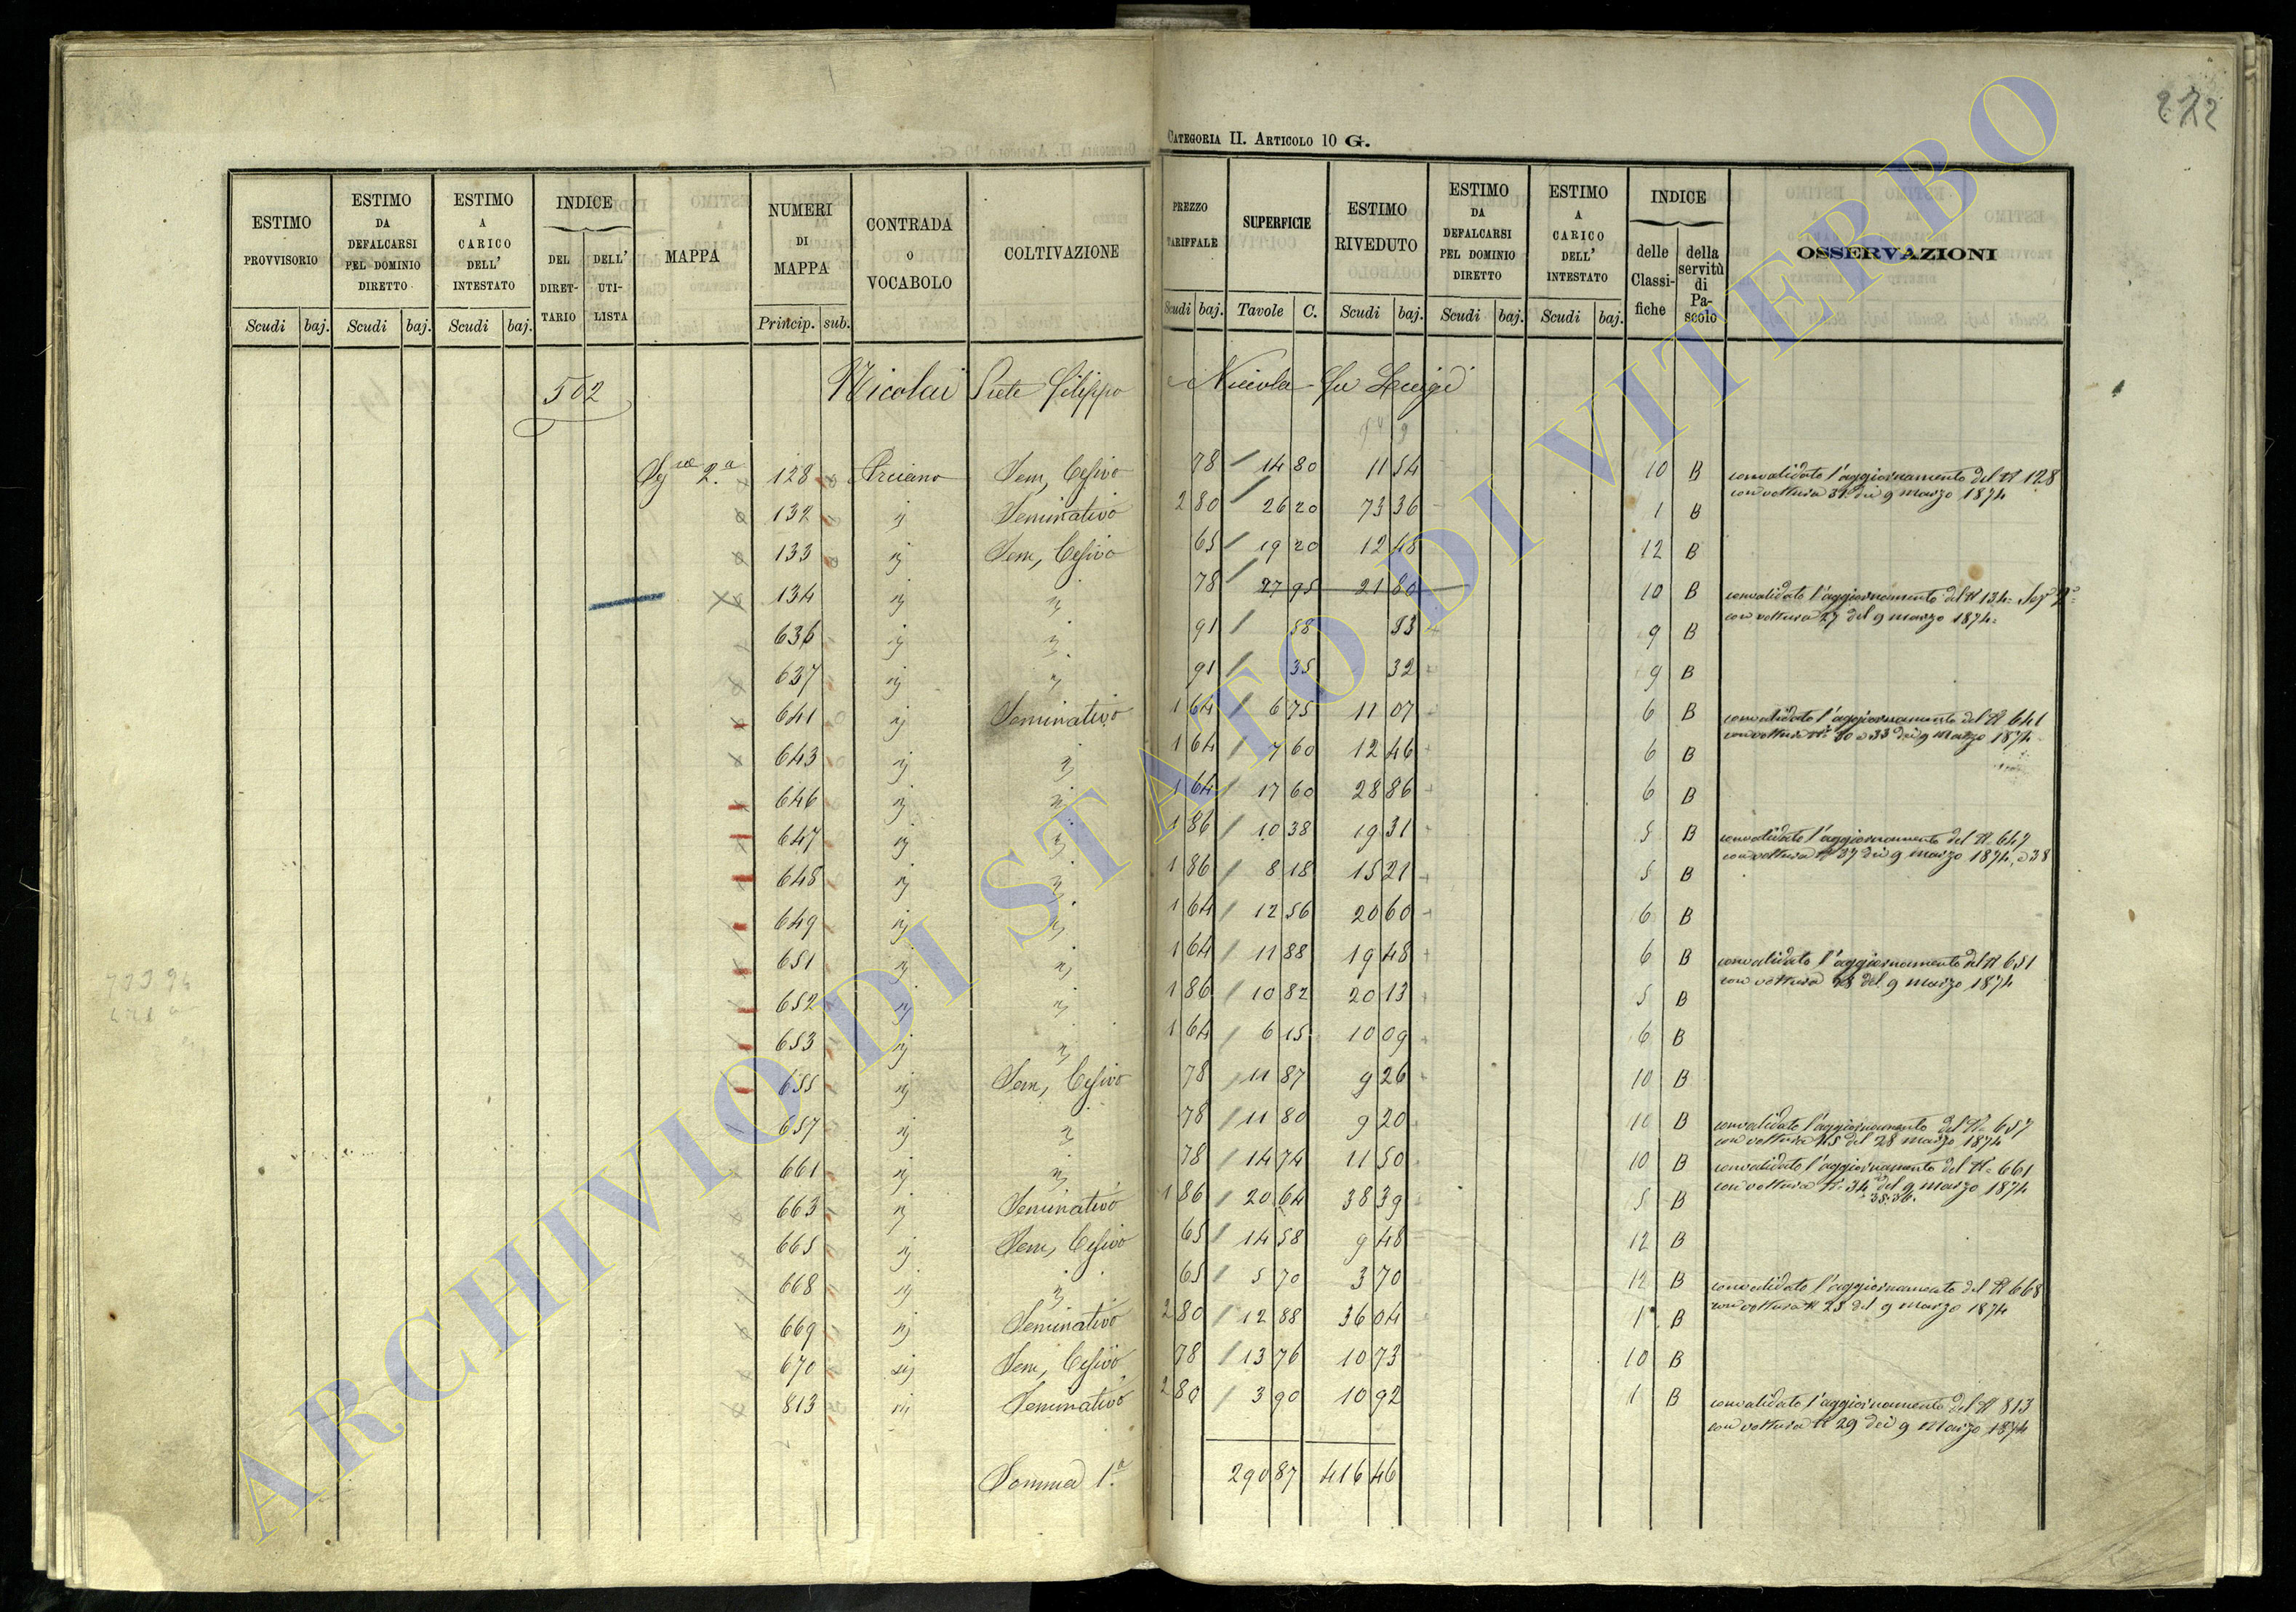 272
CATEGORIA II. ARTICOLO 10 G.
ESTIMO PROVVISORIO
ESTIMO DA DEFALCARSI PEL DOMINIO DIRETTO
ESTIMO A CARICO DELL' INTESTATO
INDICE
DEL DIRET-TARIO
DELL' UTI-LISTA
MAPPA
NUMERI DI MAPPA
CONTRADA O VOCABOLO
COLTIVAZIONE
PREZZO TARIFFALE
SUPERFICIE
ESTIMO RIVEDUTO
ESTIMO DA DEFALCARSI PEL DOMINIO DIRETTO
ESTIMO A CARICO DELL' INTESTATO
INDICE
delle Classi-fiche
della servitù di Pa-scolo
OSSERVAZIONI
Scudi baj. Scudi baj. Scudi baj. Princip. sub. Scudi baj. Tavole C. Scudi baj. Scudi baj. Scudi baj.
502 Nicolai Filippo Nicola fu Luigi
2.a 128 Sem, Cesivo 78 14 80 11 54 10 B convalidato l'aggiornamento del N 128
con voltura 31 dei 9 marzo 1874
132 " Seminativo 2 80 26 20 73 36 1 B
133 " Sem, Cesivo 65 19 20 12 48 12 B
134 " " 78 27 95 21 80 10 B convalidato l'aggiornamento del N 134
con voltura 27 del 9 marzo 1874
636 " " 91 58 53 9 B
637 " " 91 35 32 9 B
641 " Seminativo 1 64 6 75 11 07 6 B convalidato l'aggiornamento del N 641
con voltura N 30 a 33 dei 9 Marzo 1874
643 " " 1 64 7 60 12 46 6 B
646 " " 1 64 17 60 28 86 6 B
647 " " 1 86 10 38 19 31 5 B convalidato l'aggiornamento del N 647
con voltura N 37 dei 9 marzo 1874, e 38
648 " " 1 86 8 18 15 21 5 B
649 " " 1 64 12 56 20 60 6 B
651 " " 1 64 11 88 19 48 6 B convalidato l'aggiornamento del N 651
con voltura 28 del 9 marzo 1874
652 " " 1 86 10 82 20 13 5 B
653 " " 1 64 6 15 10 09 6 B
655 " Sem, Cesivo 78 11 87 9 26 10 B
657 " " 78 11 80 9 20 10 B convalidato l'aggiornamento del N 657
con voltura 45 del 28 marzo 1874
661 " " 78 14 74 11 50 10 B convalidato l'aggiornamento del N 661
con voltura N. 34 del 9 marzo 1874
35. 36.
663 " Seminativo 1 86 20 64 38 39 5 B
665 " Sem, Cesivo 65 14 58 9 48 12 B
668 " " 65 5 70 3 70 12 B convalidato l'aggiornamento del N 668
con voltura N 25 del 9 marzo 1874
669 " Seminativo 2 80 12 88 36 04 1 B
670 " Sem, Cesivo 78 13 76 10 73 10 B
813 " Seminativo 2 80 3 90 10 92 1 B convalidato l'aggiornamento del N 813
con voltura N 29 dei 9 Marzo 1874
Somma 1.a 290 87 416 46
ARCHIVIO DI STATO DI VITERBO